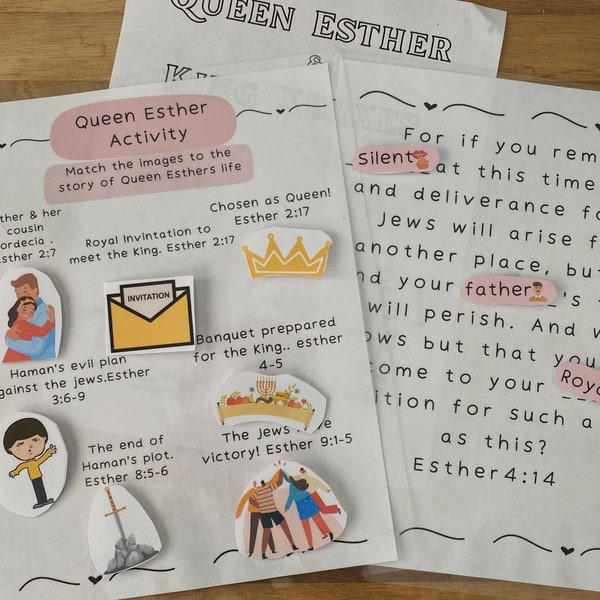 QUEEN ESTHER
&
KING XERXES
Queen Esther
Activity
Match the images to the
story of Queen Esthers life
ther & her
cousin
ordecia .
sther 2:7
Royal Invintation to
meet the King. Esther 2:17
Chosen as Queen!
Esther 2:17
INVITATION
Haman's evil plan
against the jews.Esther
3:6-9
Banquet preppared
for the King.. esther
4-5
The end of
Haman's plot.
Esther 8:5-6
The Jews
victory! Esther 9:1-5
For if you rem
Silent at this time
and deliverance fo
Jews will arise f
another place, but
nd your father 's
will perish. And w
ows but that you
ome to your Roya
ition for such a
as this?
Esther 4:14